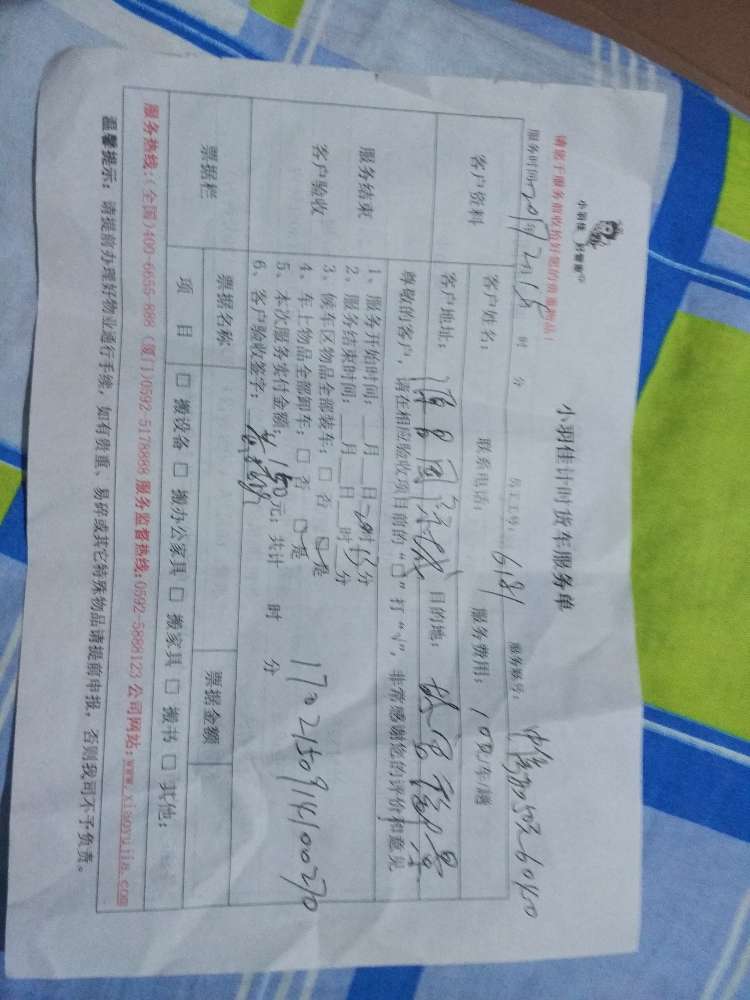 请您于服务前收拾好您的贵重物品!
小羽佳 好管家
小羽佳计时货车服务单
服务时间: 时 分 员工工号: 6181 服务账号:
客户资料
客户姓名: 联系电话: 服务费用: 元/车/趟
客户地址: 目的地:
尊敬的客户,请在相应验收项目前的“□”打“√”,非常感谢您的评价和意见
服务结束
客户验收
1、服务开始时间: 月 日 时 分
2、服务结束时间: 月 日 时 分
3、候车区物品全部装车:□ 否 □ 是
4、车上物品全部卸车:□ 否 □ 是
5、本次服务实付金额: 150元; 共计 时 分
6、客户验收签字:
1702150914100270
票据栏
票据名称 票据金额
项 目 □ 搬设备 □ 搬办公家具 □ 搬家具 □ 搬书 □ 其他:
服务热线:(全国)400-6655-888 (厦门)0592-5178888 服务监督热线:0592-5888123 公司网站:www.xiaoyujia.com
温馨提示: 请提前办理好物业通行手续,如有贵重、易碎或其它特殊物品请提前申报,否则我司不予负责。